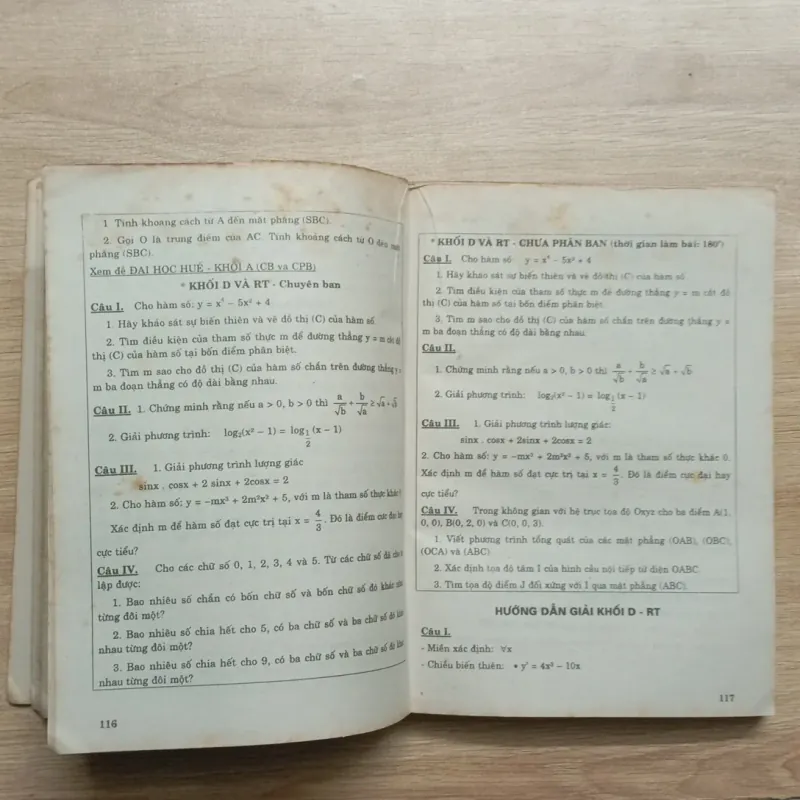 1 Tính khoảng cách từ A đến mặt phẳng (SBC).
2. Gọi O là trung điểm của AC. Tính khoảng cách từ O đến mặt
phẳng (SBC).
Xem đề ĐẠI HỌC HUẾ - KHỐI A (CB và CPB)
* KHỐI D VÀ RT - Chuyên ban
Câu I. Cho hàm số: y = x⁴ – 5x² + 4
1. Hãy khảo sát sự biến thiên và vẽ đồ thị (C) của hàm số
2. Tìm điều kiện của tham số thực m để đường thẳng y = m cắt đồ
thị (C) của hàm số tại bốn điểm phân biệt.
3. Tìm m sao cho đồ thị (C) của hàm số chắn trên đường thẳng y =
m ba đoạn thẳng có độ dài bằng nhau.
Câu II. 1. Chứng minh rằng nếu a > 0, b > 0 thì a/√b + b/√a ≥ √a + √b
2. Giải phương trình: log₂(x² – 1) = log_{1/2} (x – 1)
Câu III. 1. Giải phương trình lượng giác
sinx . cosx + 2 sinx + 2cosx = 2
2. Cho hàm số: y = –mx³ + 2m²x² + 5, với m là tham số thực khác 0.
Xác định m để hàm số đạt cực trị tại x = 4/3. Đó là điểm cực đại hay
cực tiểu?
Câu IV. Cho các chữ số 0, 1, 2, 3, 4 và 5. Từ các chữ số đã cho
lập được:
1. Bao nhiêu số chẵn có bốn chữ số và bốn chữ số đó khác nhau
từng đôi một?
2. Bao nhiêu số chia hết cho 5, có ba chữ số và ba chữ số đó khác
nhau từng đôi một?
3. Bao nhiêu số chia hết cho 9, có ba chữ số và ba chữ số đó khác
nhau từng đôi một?
116
* KHỐI D VÀ RT - CHƯA PHÂN BAN (thời gian làm bài: 180')
Câu I. Cho hàm số: y = x⁴ – 5x² + 4
1. Hãy khảo sát sự biến thiên và vẽ đồ thị (C) của hàm số
2. Tìm điều kiện của tham số thực m để đường thẳng y = m cắt đồ
thị (C) của hàm số tại bốn điểm phân biệt.
3. Tìm m sao cho đồ thị (C) của hàm số chắn trên đường thẳng y =
m ba đoạn thẳng có độ dài bằng nhau.
Câu II.
1. Chứng minh rằng nếu a > 0, b > 0 thì a/√b + b/√a ≥ √a + √b
2. Giải phương trình: log₂(x² – 1) = log_{1/2} (x – 1)
Câu III. 1. Giải phương trình lượng giác:
sinx . cosx + 2sinx + 2cosx = 2
2. Cho hàm số: y = –mx³ + 2m²x² + 5, với m là tham số thực khác 0.
Xác định m để hàm số đạt cực trị tại x = 4/3. Đó là điểm cực đại hay
cực tiểu?
Câu IV. Trong không gian với hệ trục tọa độ Oxyz cho ba điểm A(1,
0, 0), B(0, 2, 0) và C(0, 0, 3).
1. Viết phương trình tổng quát của các mặt phẳng (OAB), (OBC),
(OCA) và (ABC)
2. Xác định tọa độ tâm I của hình cầu nội tiếp tứ diện OABC
3. Tìm tọa độ điểm J đối xứng với I qua mặt phẳng (ABC).
HƯỚNG DẪN GIẢI KHỐI D - RT
Câu I.
- Miền xác định: ∀x
- Chiều biến thiên: • y' = 4x³ – 10x
117